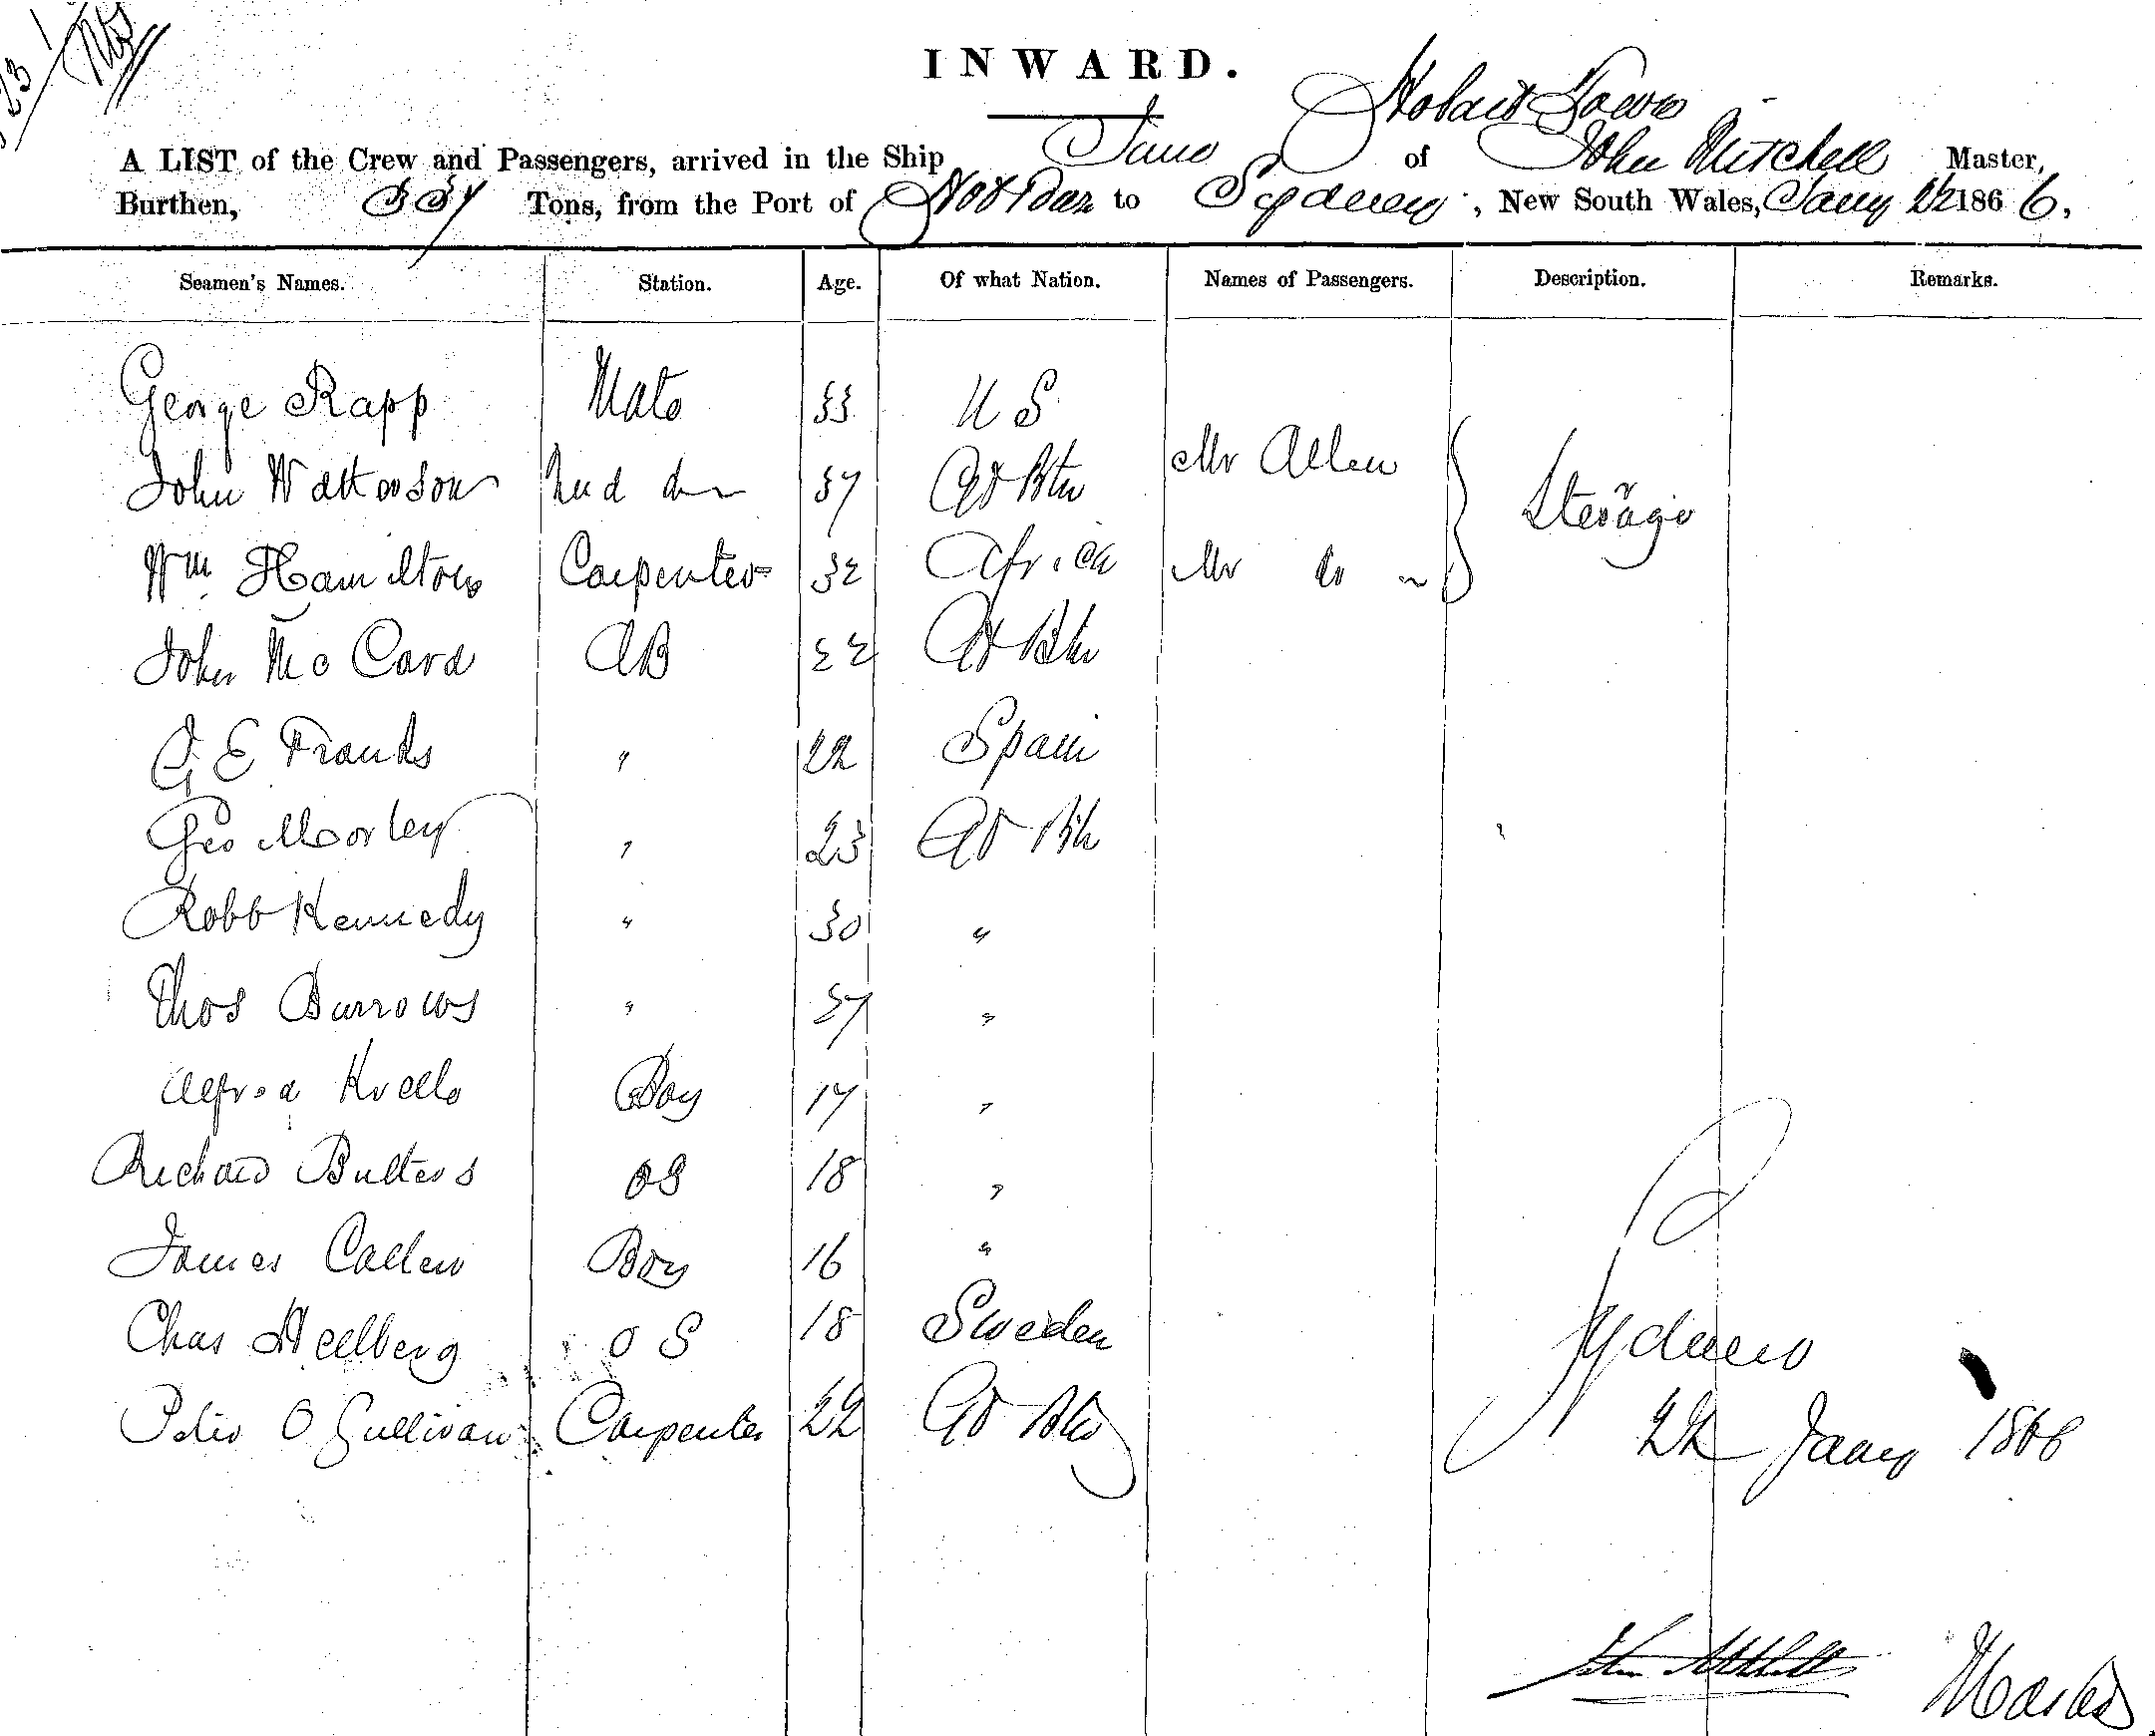 INWARD.
Hobart Town
A LIST of the Crew and Passengers, arrived in the Ship Jane of John Mitchell Master,
Burthen, Tons, from the Port of to Sydney, New South Wales, Jany 22 1866,
Seamen's Names. Station. Age. Of what Nation. Names of Passengers. Description. Remarks.
George Rapp Mate 33 U S
Mr Allen
John Watterson 2nd do 37 Gt Btn
Sterage
Wm Hamilton Carpenter 32 Africa Mr do
John McCard AB 22 Gt Btn
G E Franks " 22 Spain
Geo Morley " 23 Gt Btn
Robb Kennedy " 30 "
Thos Burrows " 37 "
Alfred Boy 17 "
Richard Butters OS 18 "
James Callen Boy 16 "
Chas Hellberg O S 18 Sweden
Peter O Sullivan Carpenter 22 Gt Btn
Sydney
22 Jany 1866
John Mitchell Master